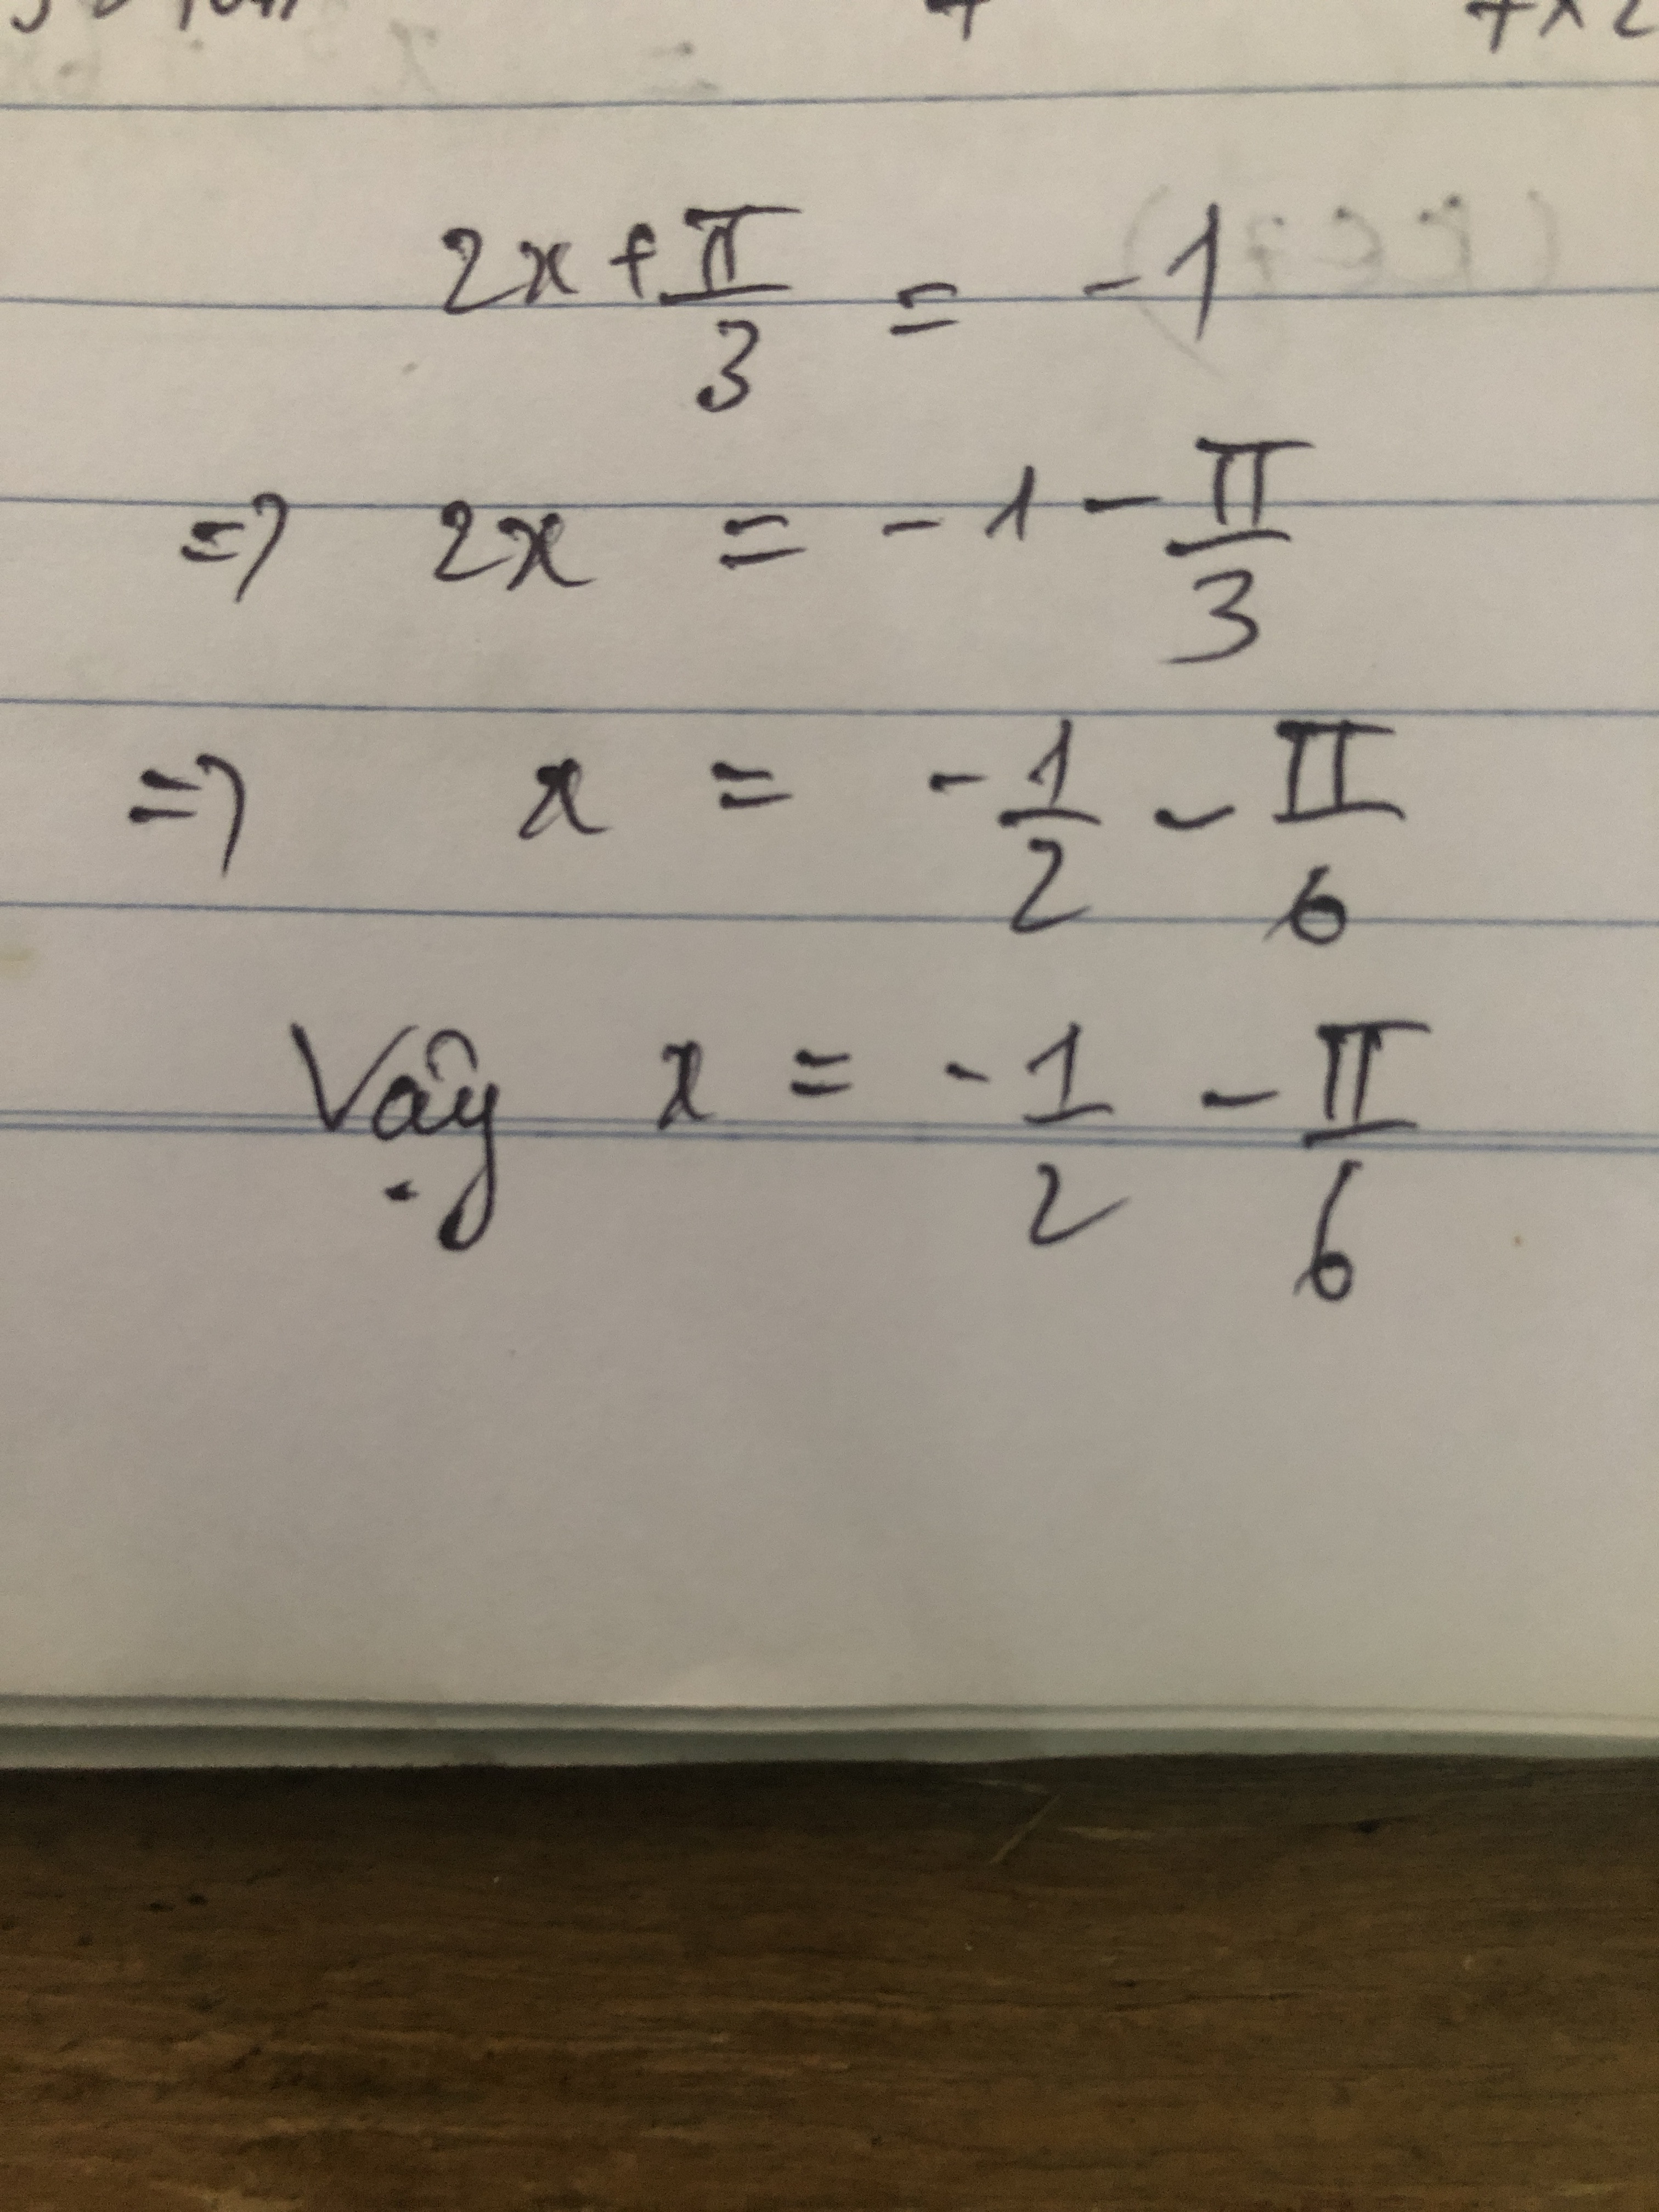 2x + π/3 = -1
=> 2x = -1 - π/3
=> x = -1/2 - π/6
Vậy x = -1/2 - π/6